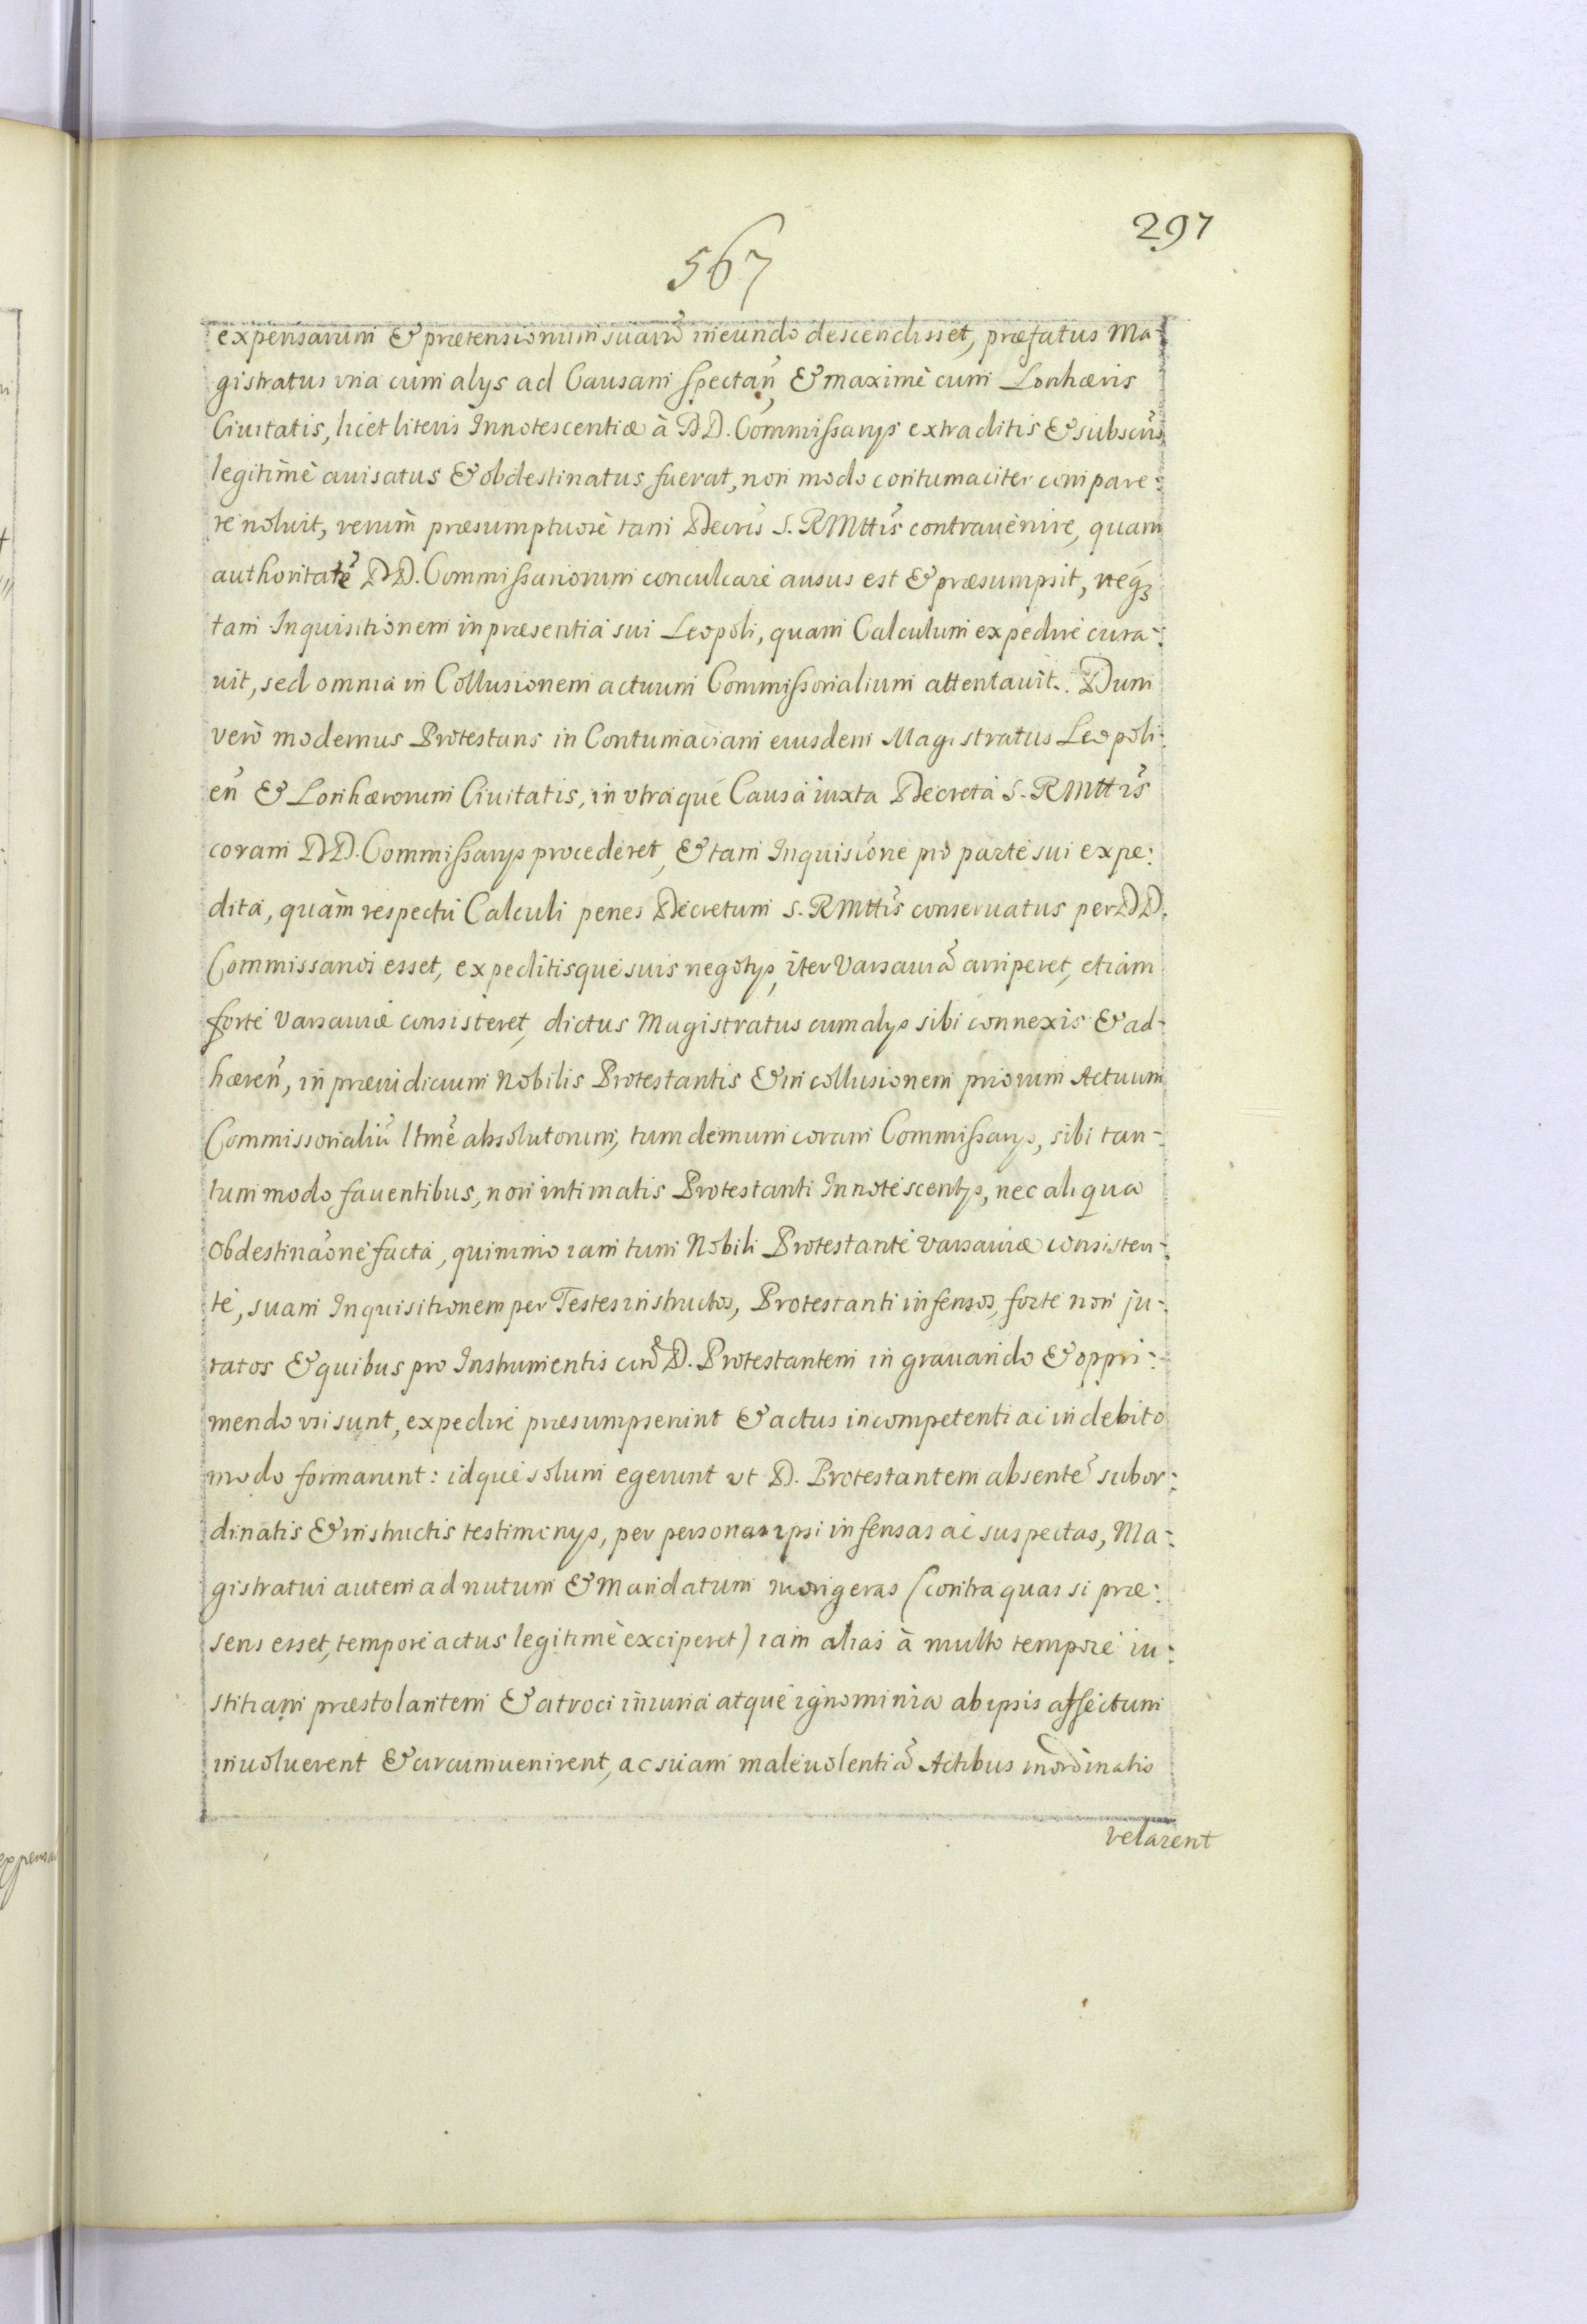 297
567
expensarum & prætensionum suarũ ineundo descendisset, præfatus Ma-
gistratus vna cum alys ad Causam spectan̄, & maximè cum Lonhæris
Ciuitatis, licet literis Innotescentiæ à DD. Commissarys extraditis & subscris
legitimè auisatus & obdestinatus fuerat, non modo contumaciter compare:
re noluit, verùm præsumptuosè tam Decris S. RMttis contrauenire, quam
authoritatẽ DD. Commissariorum conculcare ausus est & præsumpsit, neqꝫ
tam Inquisitionem in præsentia sui Leopoli, quam Calculum expedire cura-
uit, sed omnia in Collusionem actuum Commissorialium attentauit. Dum
verò modernus Protestans in Contumaciam eiusdem Magistratus Leopoli-
en̄ & Lonhærorum Ciuitatis, in vtraque Causa iuxta Decreta S. RMttis
coram DD. Commissarys procederet, & tam Inquisicõne pro parte sui expe:
dita, quàm respectu Calculi penes Decretum S. RMttis conseruatus per DD.
Commissarios esset, expeditisque suis negotys, iter Varsauiã arriperet, etiam
forte Varsauiæ consisteret, dictus Magistratus cum alys sibi connexis & ad-
hæren̄, in præiudicium Nobilis Protestantis & in collusionem priorum Actuum
Commissorialiũ ltmẽ absolutorum, tum demum coram Commissarys, sibi tan-
tum modo fauentibus, non intimatis Protestanti Innotescentys, nec aliqua
obdestinaõne facta, quinimo iam tum Nobili Protestante Varsauiæ consisten-
te, suam Inquisitionem per Testes instructos, Protestanti infensos, forte non ju-
ratos & quibus pro Instrumentis cir̃ D. Protestantem in grauando & oppri:
mendo vsi sunt, expedire præsumpserint & actus incompetenti ac indebito
modo formarunt: idque solum egerunt vt D. Protestantem absentẽ subor:
dinatis & instructis testimonys, per personas ipsi infensas ac suspectas, Ma:
gistratui autem ad nutum & Mandatum morigeras (contra quas si præ:
sens esset, tempore actus legitimè exciperet) iam alias à multo tempore iu:
stitiam præstolantem & atroci iniuria atque ignominia ab ipsis affectum
inuoluerent & circumuenirent, ac suam maleuolentiã Actibus inordinatis
velarent